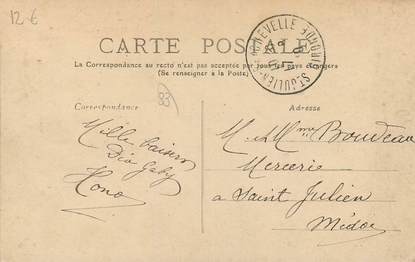 12-€
CARTE POSTALE
La Correspondance au recto n'est pas acceptée par tous les pays étrangers
(Se renseigner à la Poste)
ST JULIEN-BEYCHEVELLE GIRONDE
Correspondance
33
Adresse
Mille baisers
Dia Gaby
Hono
M. et Mme Boudeau
Mercerie
a Saint Julien
Médoc